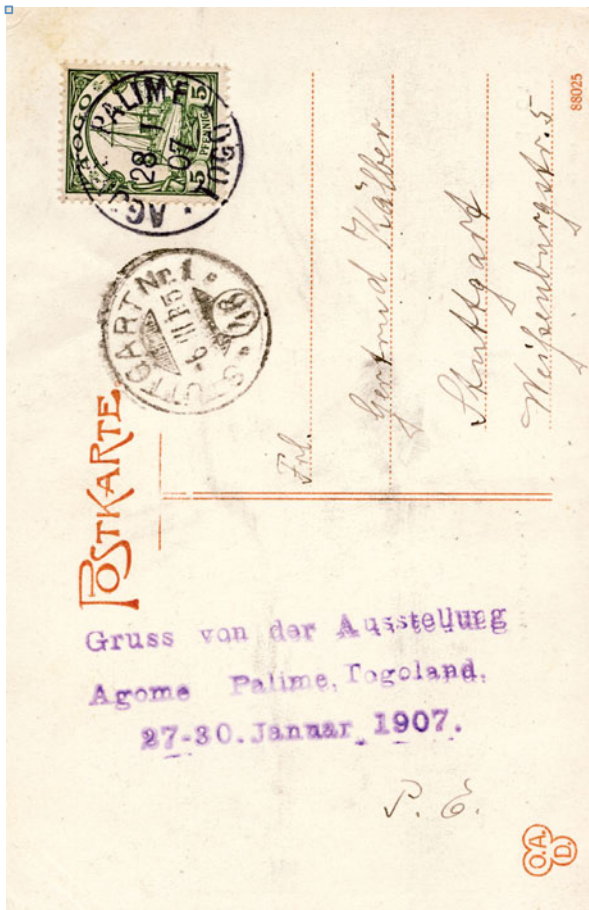 TOGO
5 PFENNIG 5
PALIME
28
07
TOGO
STUTTGART Nr. 1
POSTKARTE
Frl.
Gertrud Kälber
Stuttgart
Weißenburgstr. 5
88025
Gruss von der Ausstellung
Agome Palime, Togoland.
27-30. Januar 1907.
P. E.
O.A.
D.